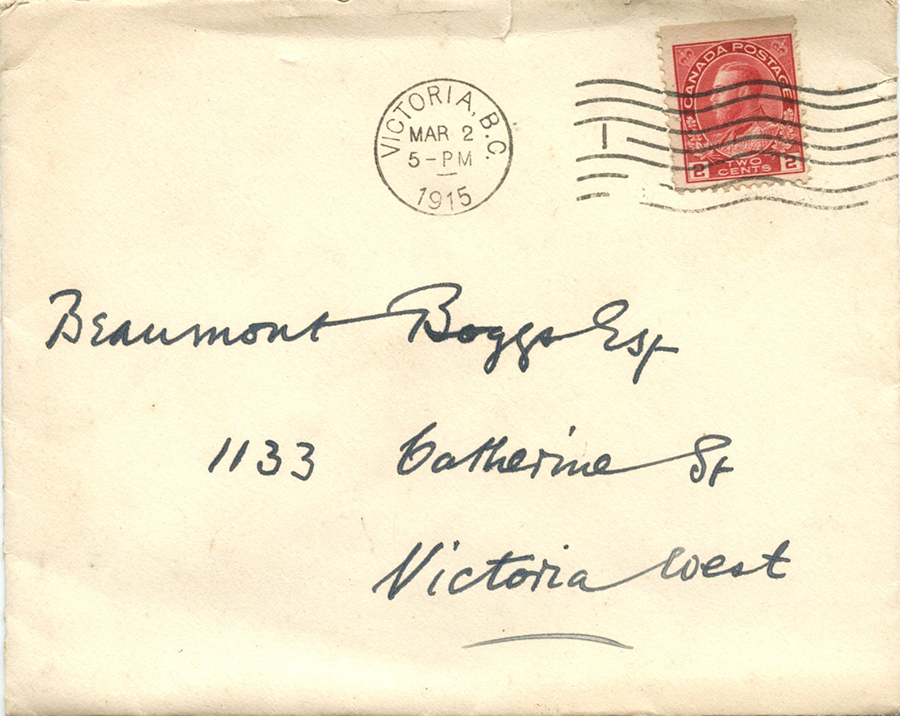 VICTORIA, B.C.
MAR 2
5-PM
1915
1
CANADA POSTAGE
2 TWO CENTS 2
Beaumont Boggs Esq
1133 Catherine St
Victoria West